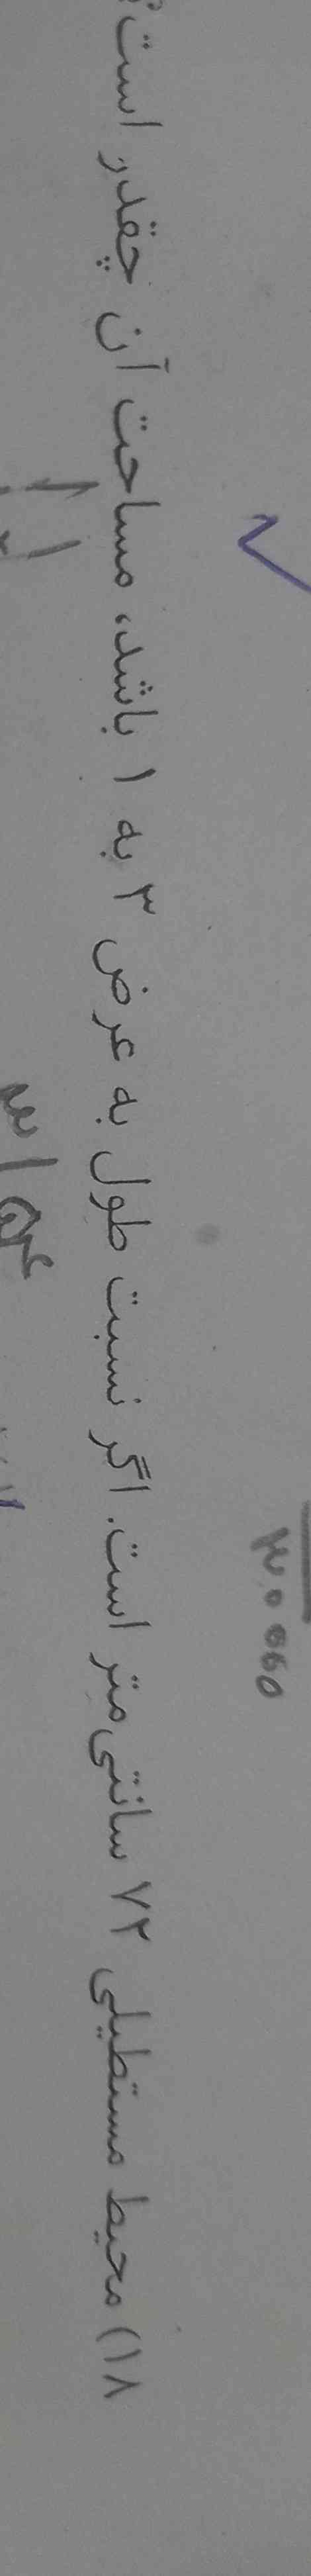 ۱۸) محیط مستطیلی ۷۲ سانتی‌متر است. اگر نسبت طول به عرض ۳ به ۱ باشد، مساحت آن چقدر است؟
۳۰۰۰۰